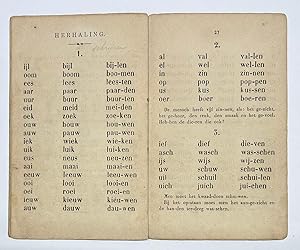 HERHALING.
1.
ijl bijl bij-len
oom boom boo-men
ees lees lees-ten
aar paar paar-den
uur buur buur-ten
eid meid mei-den
oek zoek zoe-ken
ouw bouw bou-wen
auw pauw pau-wen
iek wiek wie-ken
uik luik lui-ken
eus neus neu-zen
aai maai maai-en
eeuw leeuw leeu-wen
ooi looi looi-en
oei roei roei-en
ieuw kieuw kieu-wen
auw dauw dau-wen
27
2.
al val val-len
el wel wel-len
in zin zin-nen
op pop pop-pen
us kus kus-sen
oer boer boe-ren
De mensch heeft vijf zin-nen, als: het ge-zicht,
het ge-hoor, den reuk, den smaak en het ge-voel.
Heb-ben de die-ren die ook?
3.
ief dief die-ven
asch wasch was-schen
ijs wijs wij-zen
uw schuw schu-wen
uil schuil schui-len
uich juich jui-chen
Men moet het kwaad-doen schu-wen.
Bij het opstaan moet men het aan-ge-zicht en
de han-den zin-delijk was-schen.